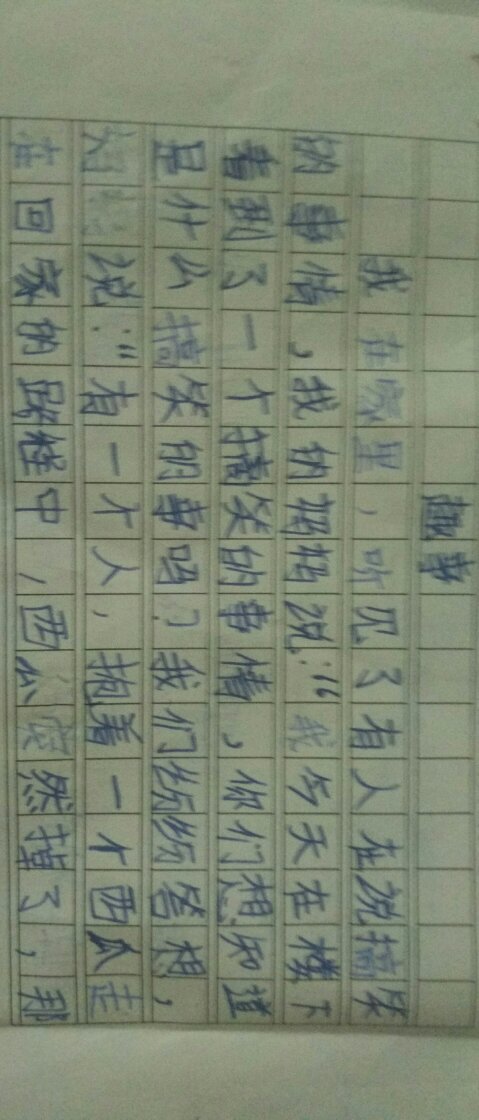 趣事
我在家里，听见了有人在说搞笑
的事情，我的妈妈说：“我今天在楼下
看到了一个搞笑的事情，你们想知道
是什么搞笑的事吗？我们纷纷答想，
说：“有一个人，抱着一个西瓜走
在回家的路径中，西瓜突然掉了，那